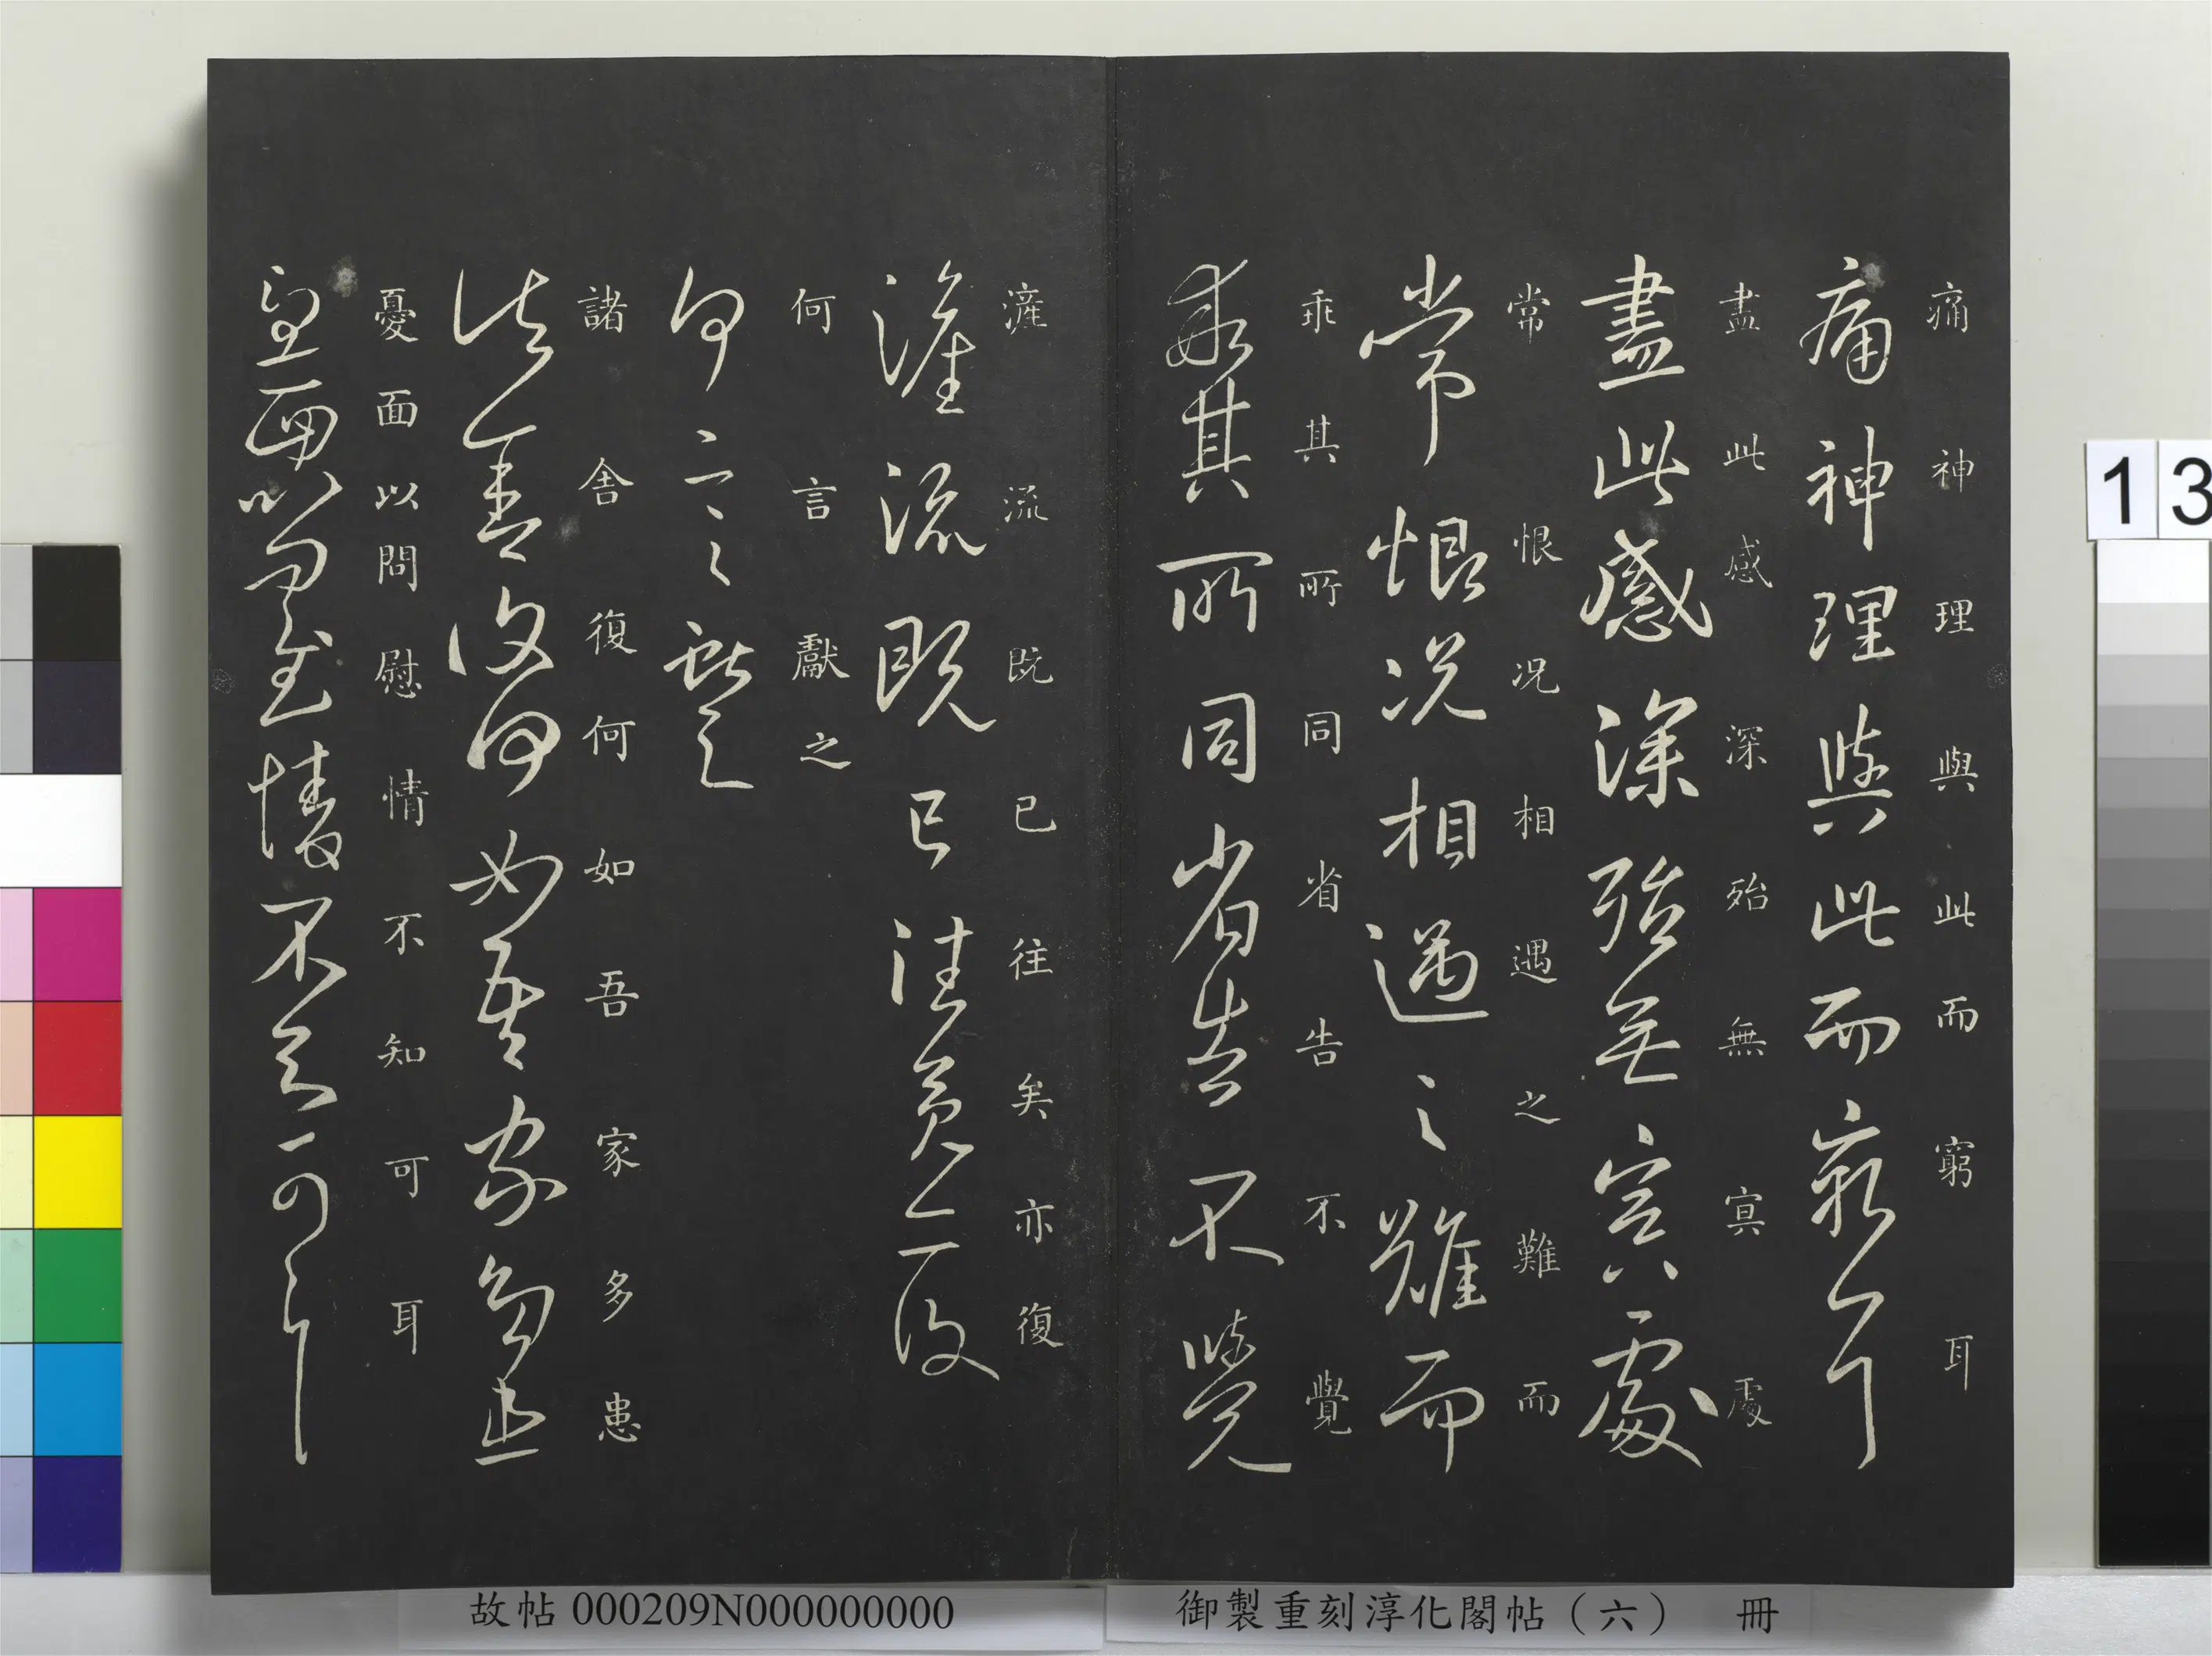 痛神理與此而窮耳
痛神理與此而窮耳
盡此感深殆無寘處
盡此感深殆無寘處
常恨况相遇之難而
常恨况相遇之難而
乖其所同省告不覺
乖其所同省告不覺
漼流既已往矣亦復
漼流既已往矣亦復
何言獻之
何言獻之
諸舍復何如吾家多患
諸舍復何如吾家多患
憂面以問慰情不知可耳
憂面以問慰情不知可耳
13
御製重刻淳化閣帖（六） 冊
故帖 000209N000000000